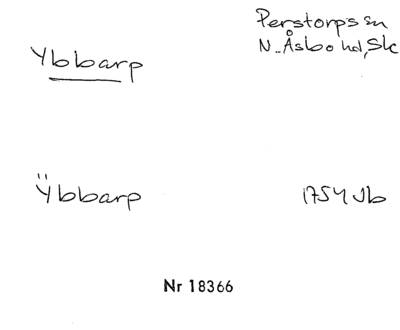 Perstorps sn
Ybbarp
N. Åsbo hd, Sk
Ÿbbarp
1754 Jb
Nr 18366